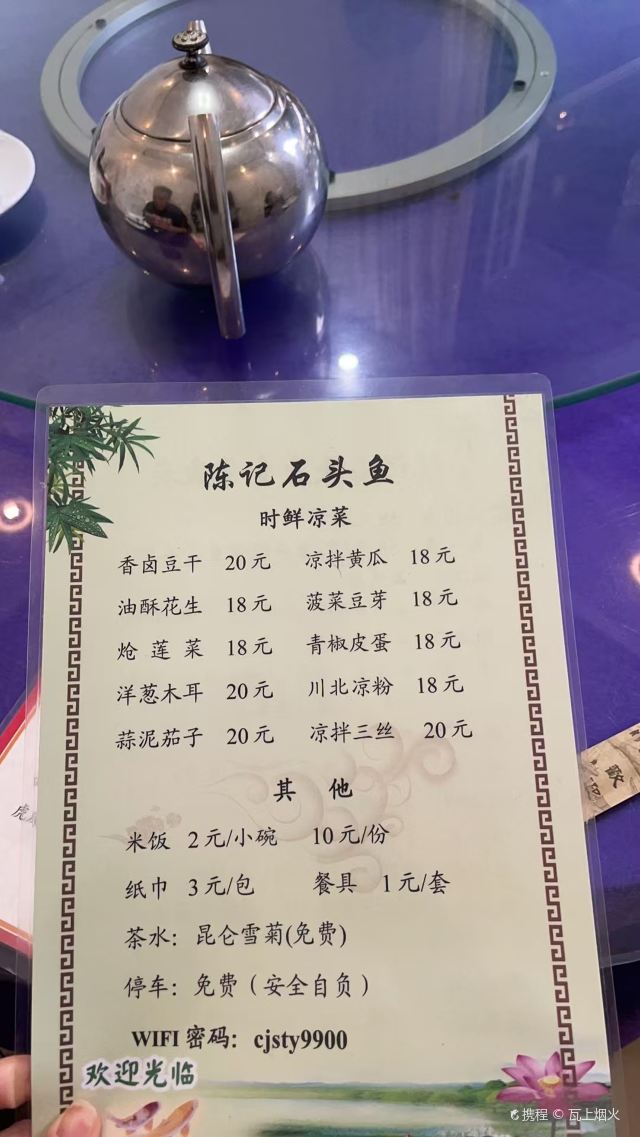 陈记石头鱼
时鲜凉菜
香卤豆干 20元 凉拌黄瓜 18元
油酥花生 18元 菠菜豆芽 18元
炝莲菜 18元 青椒皮蛋 18元
洋葱木耳 20元 川北凉粉 18元
蒜泥茄子 20元 凉拌三丝 20元
其他
米饭 2元/小碗 10元/份
纸巾 3元/包 餐具 1元/套
茶水：昆仑雪菊(免费)
停车：免费（安全自负）
WIFI密码：cjsty9900
欢迎光临
携程 © 瓦上烟火